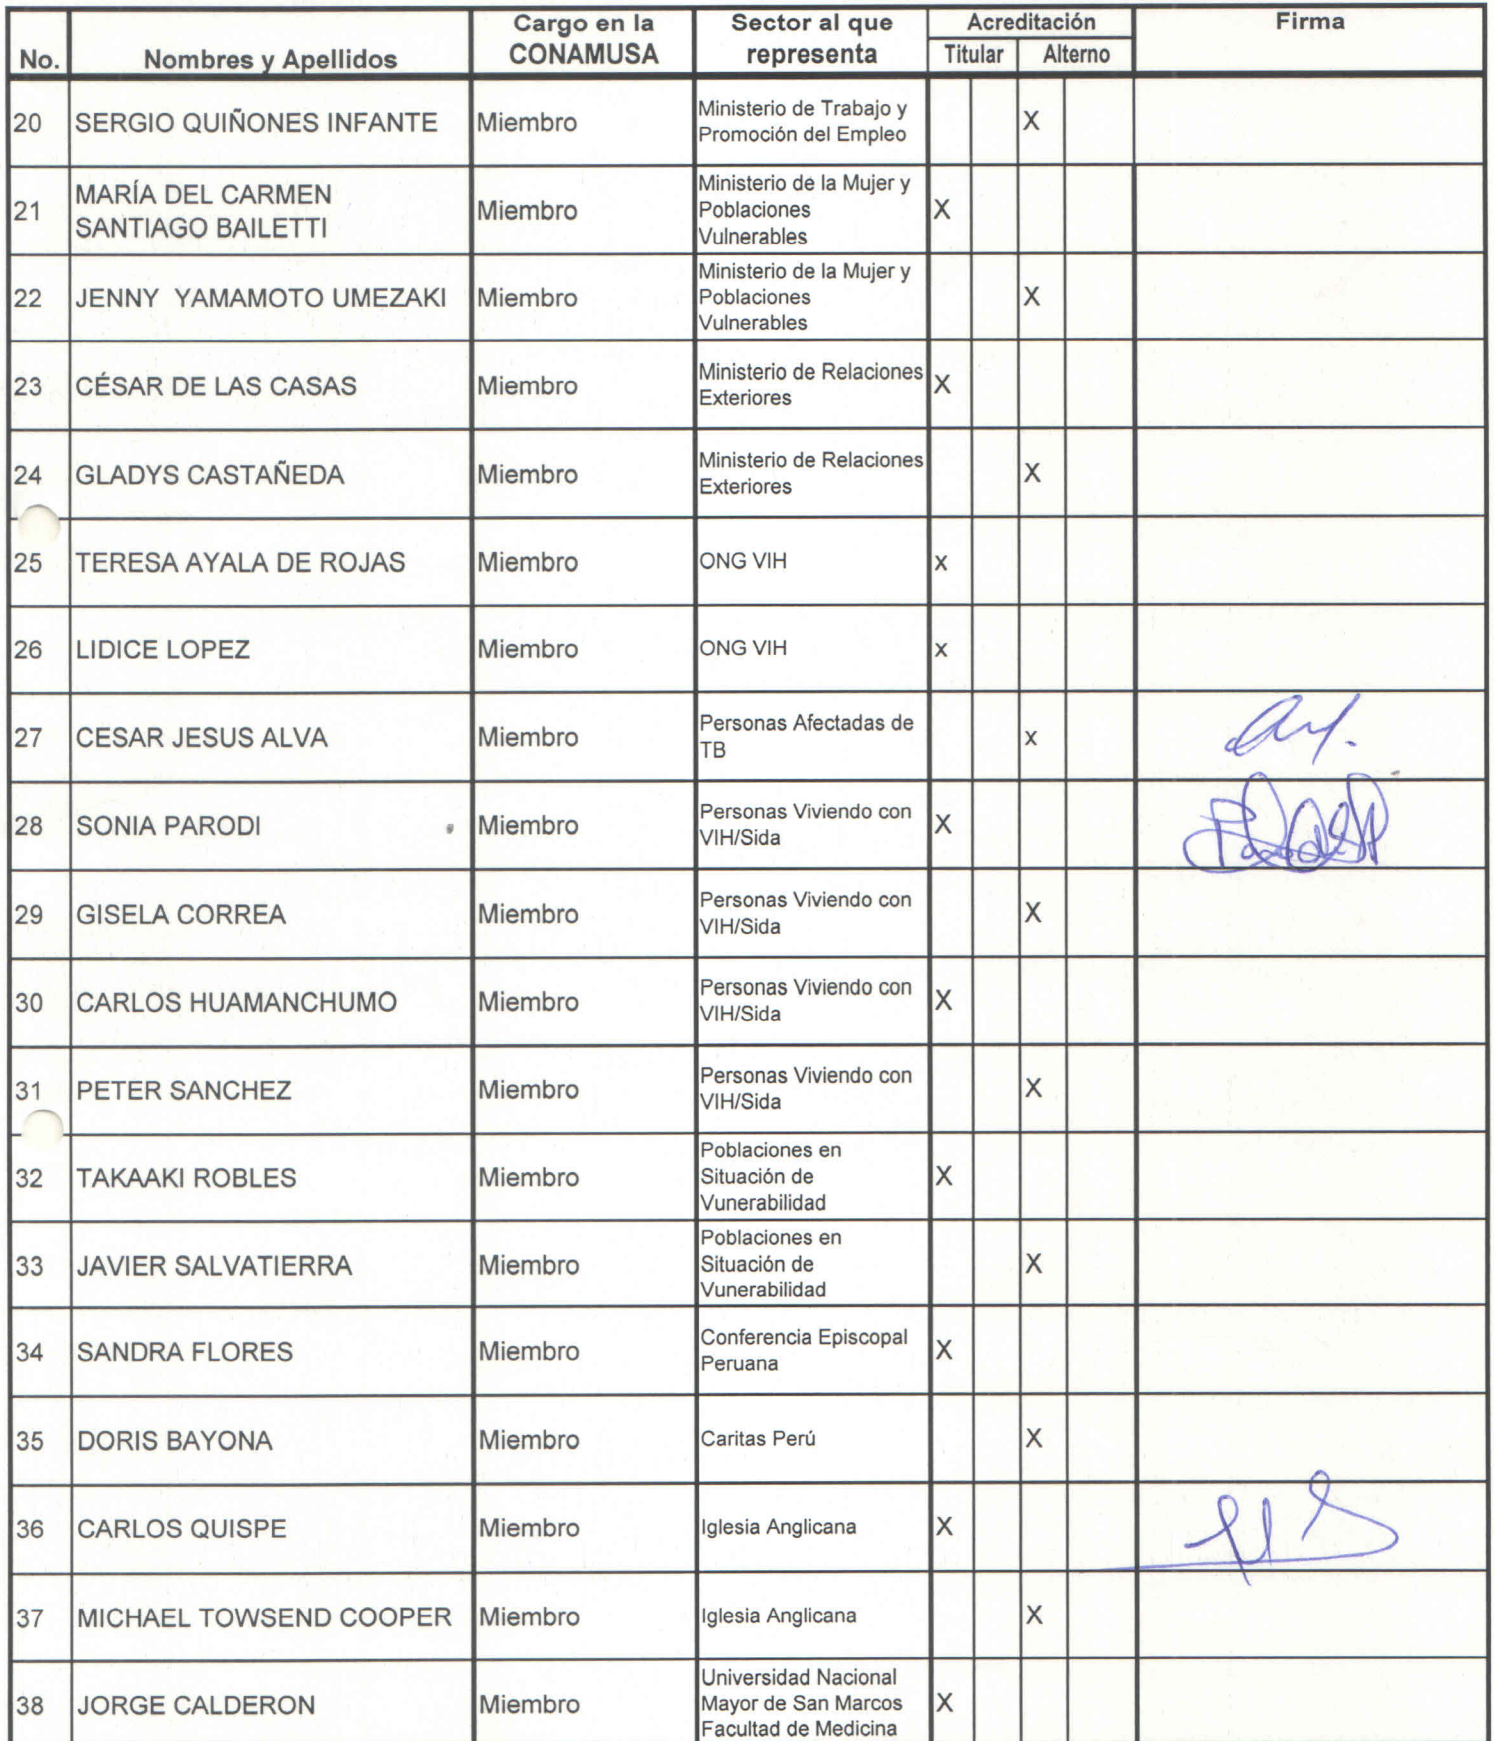 No. Nombres y Apellidos Cargo en la CONAMUSA Sector al que representa Acreditación Firma
Titular Alterno
20 SERGIO QUIÑONES INFANTE Miembro Ministerio de Trabajo y Promoción del Empleo X
21 MARÍA DEL CARMEN SANTIAGO BAILETTI Miembro Ministerio de la Mujer y Poblaciones Vulnerables X
22 JENNY YAMAMOTO UMEZAKI Miembro Ministerio de la Mujer y Poblaciones Vulnerables X
23 CÉSAR DE LAS CASAS Miembro Ministerio de Relaciones Exteriores X
24 GLADYS CASTAÑEDA Miembro Ministerio de Relaciones Exteriores X
25 TERESA AYALA DE ROJAS Miembro ONG VIH x
26 LIDICE LOPEZ Miembro ONG VIH x
27 CESAR JESUS ALVA Miembro Personas Afectadas de TB x
28 SONIA PARODI Miembro Personas Viviendo con VIH/Sida X
29 GISELA CORREA Miembro Personas Viviendo con VIH/Sida X
30 CARLOS HUAMANCHUMO Miembro Personas Viviendo con VIH/Sida X
31 PETER SANCHEZ Miembro Personas Viviendo con VIH/Sida X
32 TAKAAKI ROBLES Miembro Poblaciones en Situación de Vunerabilidad X
33 JAVIER SALVATIERRA Miembro Poblaciones en Situación de Vunerabilidad X
34 SANDRA FLORES Miembro Conferencia Episcopal Peruana X
35 DORIS BAYONA Miembro Caritas Perú X
36 CARLOS QUISPE Miembro Iglesia Anglicana X
37 MICHAEL TOWSEND COOPER Miembro Iglesia Anglicana X
38 JORGE CALDERON Miembro Universidad Nacional Mayor de San Marcos Facultad de Medicina X